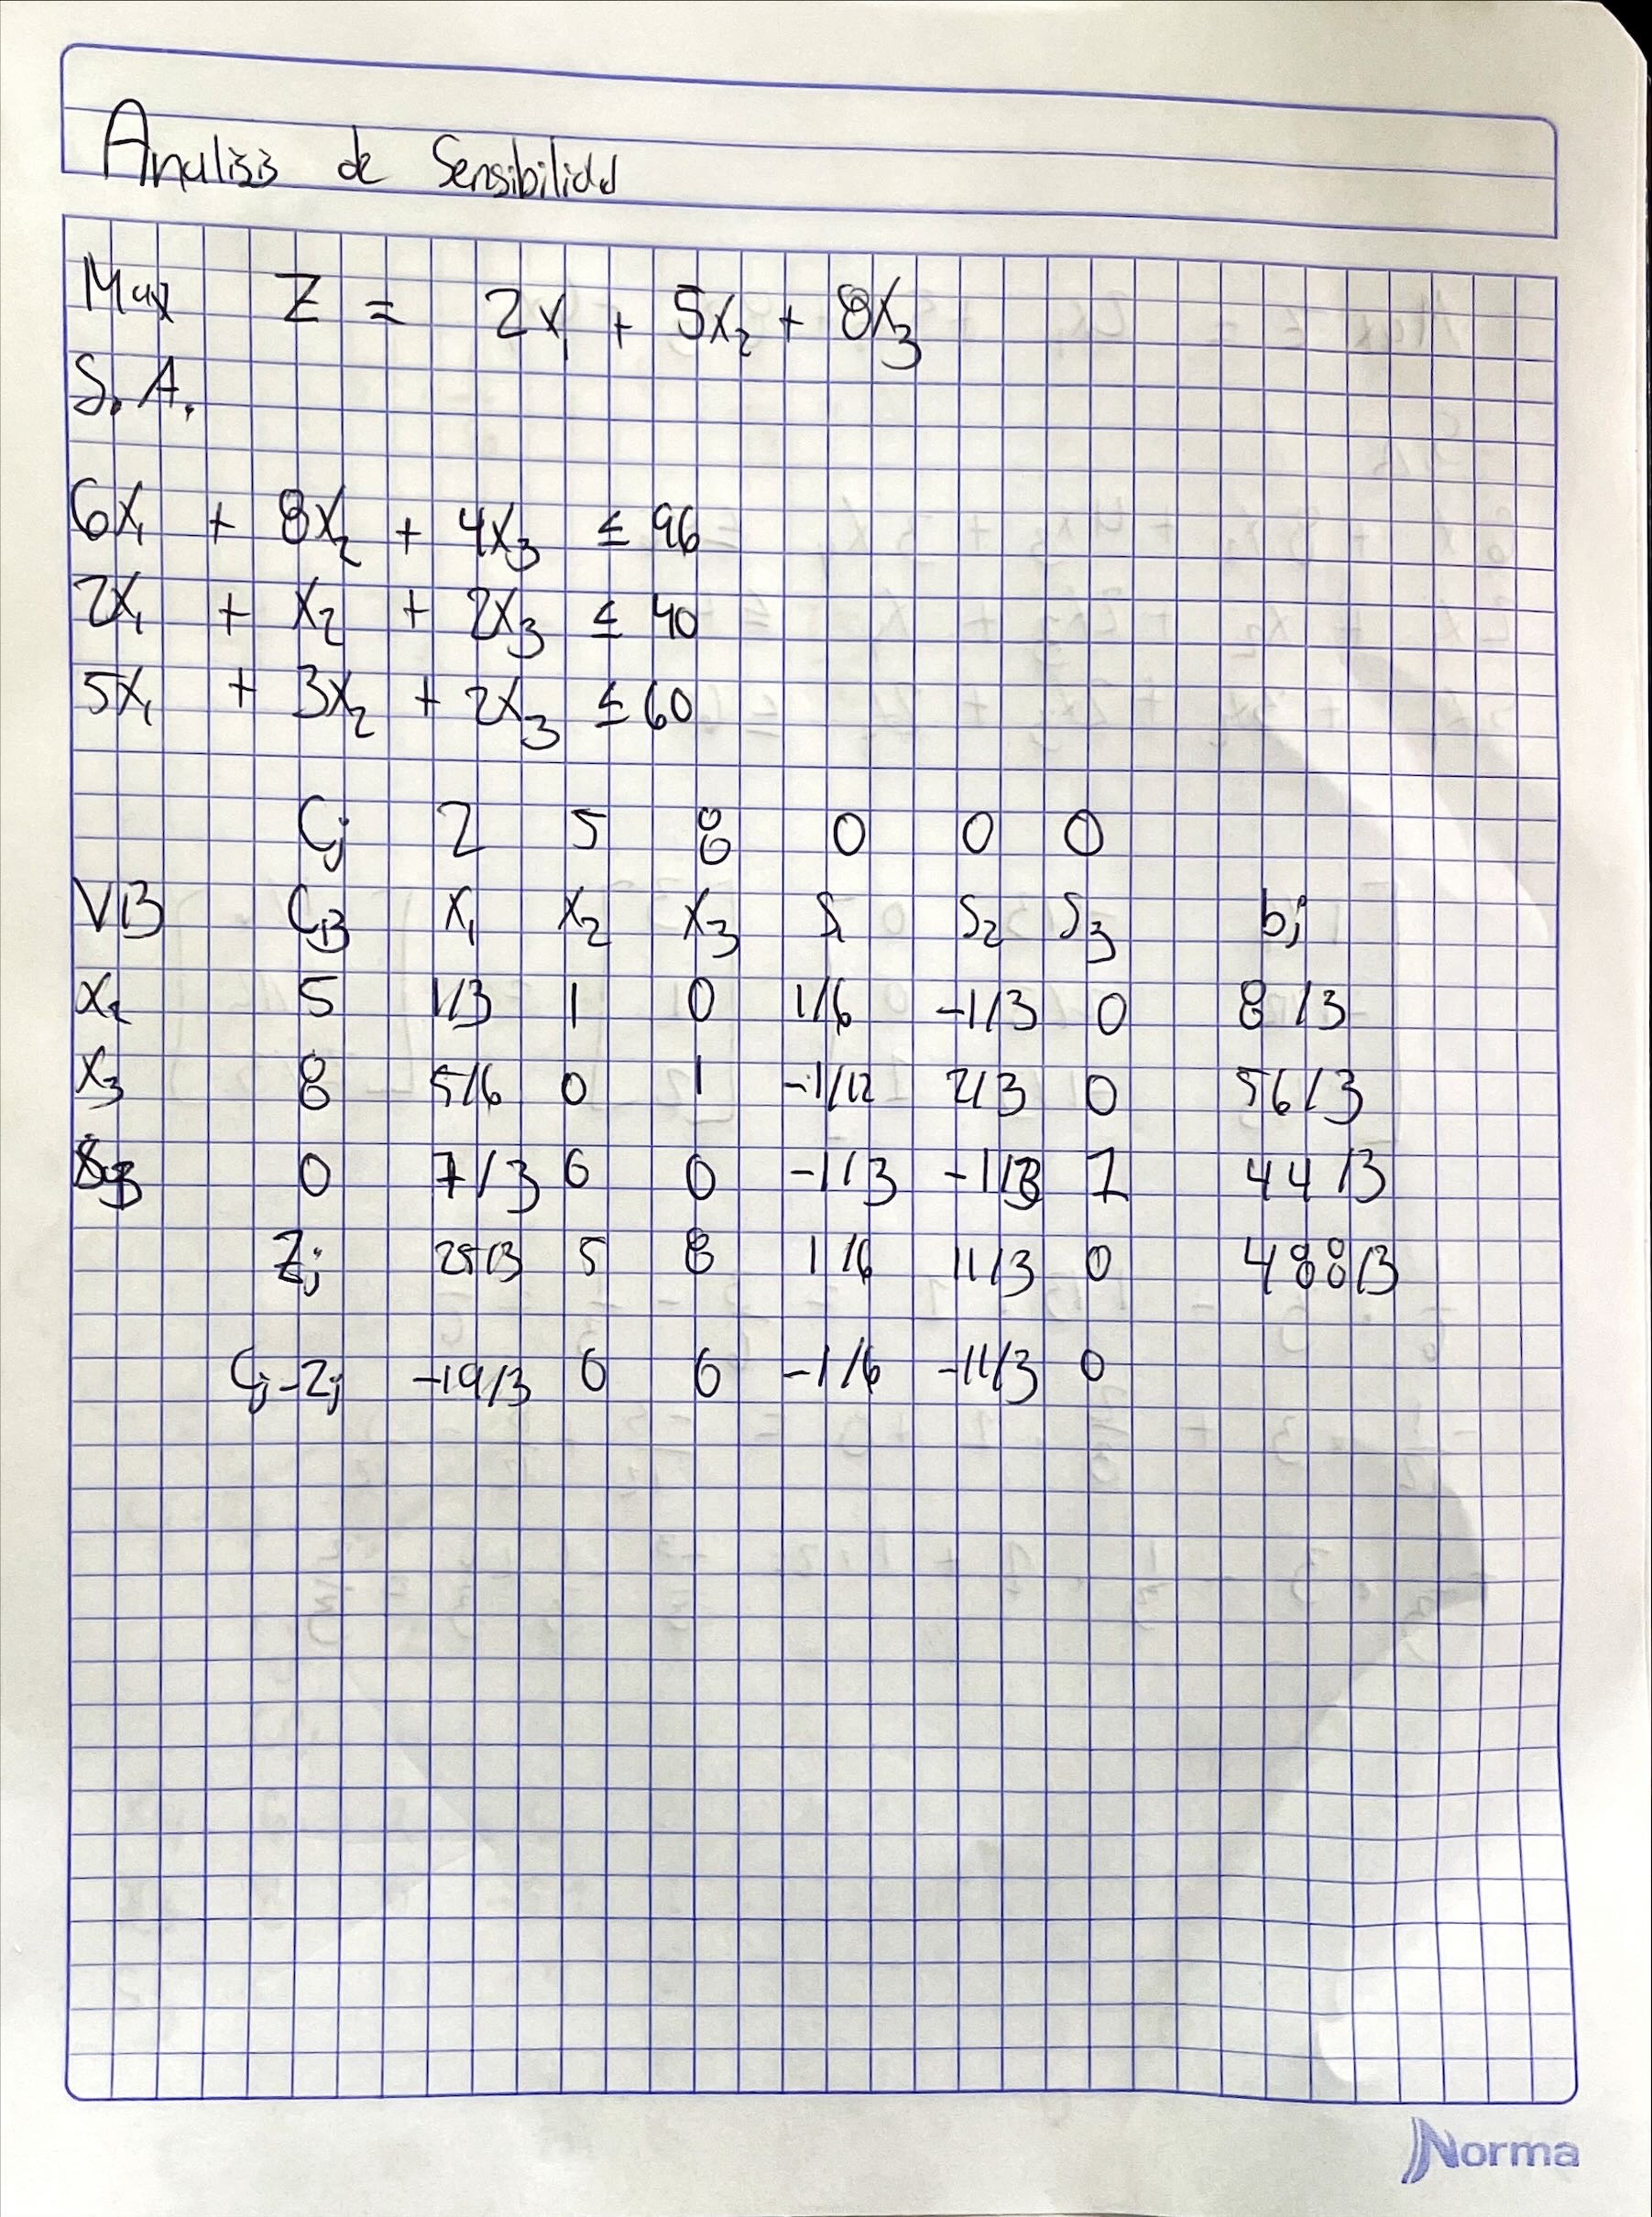 Analisis de Sensibilidad
Max Z = 2x₁ + 5x₂ + 8x₃
S.A.
6x₁ + 8x₂ + 4x₃ ≤ 96
2x₁ + x₂ + 2x₃ ≤ 40
5x₁ + 3x₂ + 2x₃ ≤ 60
Cj 2 5 8 0 0 0
VB CB x₁ x₂ x₃ S₁ S₂ S₃ bj
x₂ 5 1/3 1 0 1/6 -1/3 0 8/3
x₃ 8 5/6 0 1 -1/12 2/3 0 56/3
S₃ 0 7/3 0 0 -1/3 -1/3 1 44/3
Zj 25/3 5 8 1/6 11/3 0 488/3
Cj-Zj -19/3 0 0 -1/6 -11/3 0
Norma